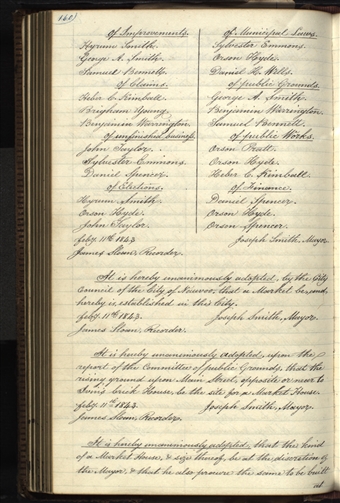 160)
of Improvements.
Hyrum Smith.
George A. Smith.
Samuel Bennett.
of Claims.
Heber C. Kimball.
Brigham Young.
Benjamin Warrington.
of unfinished business.
John Taylor.
Sylvester Emmons.
Daniel Spencer.
of Elections.
Hyrum Smith.
Orson Hyde.
John Taylor.
of Municipal Laws.
Sylvester Emmons.
Orson Hyde.
Daniel H. Wells.
of public Grounds.
George A. Smith.
Benjamin Warrington.
Samuel Bennett.
of public Works.
Orson Pratt.
Orson Hyde.
Heber C. Kimball.
of Finance.
Daniel Spencer.
Orson Hyde.
Orson Spencer.
feby. 11th 1843. Joseph Smith, Mayor.
James Sloan, Recorder.
It is hereby unanimously adopted, by the City
Council of the City of Nauvoo, that a Market be, and
hereby is, established in this City.
feby. 11th 1843. Joseph Smith, Mayor.
James Sloan, Recorder.
It is hereby unanimously adopted, upon the
report of the Committee of public Grounds, that the
rising ground upon Main Street, opposite or near to
brick House, be the site for a Market House.
feby. 11th 1843. Joseph Smith, Mayor.
James Sloan, Recorder.
It is hereby unanimously adopted, that the kind
of a Market House, & size thereof, be at the discretion of
the Mayor, & that he also procure the same to be built